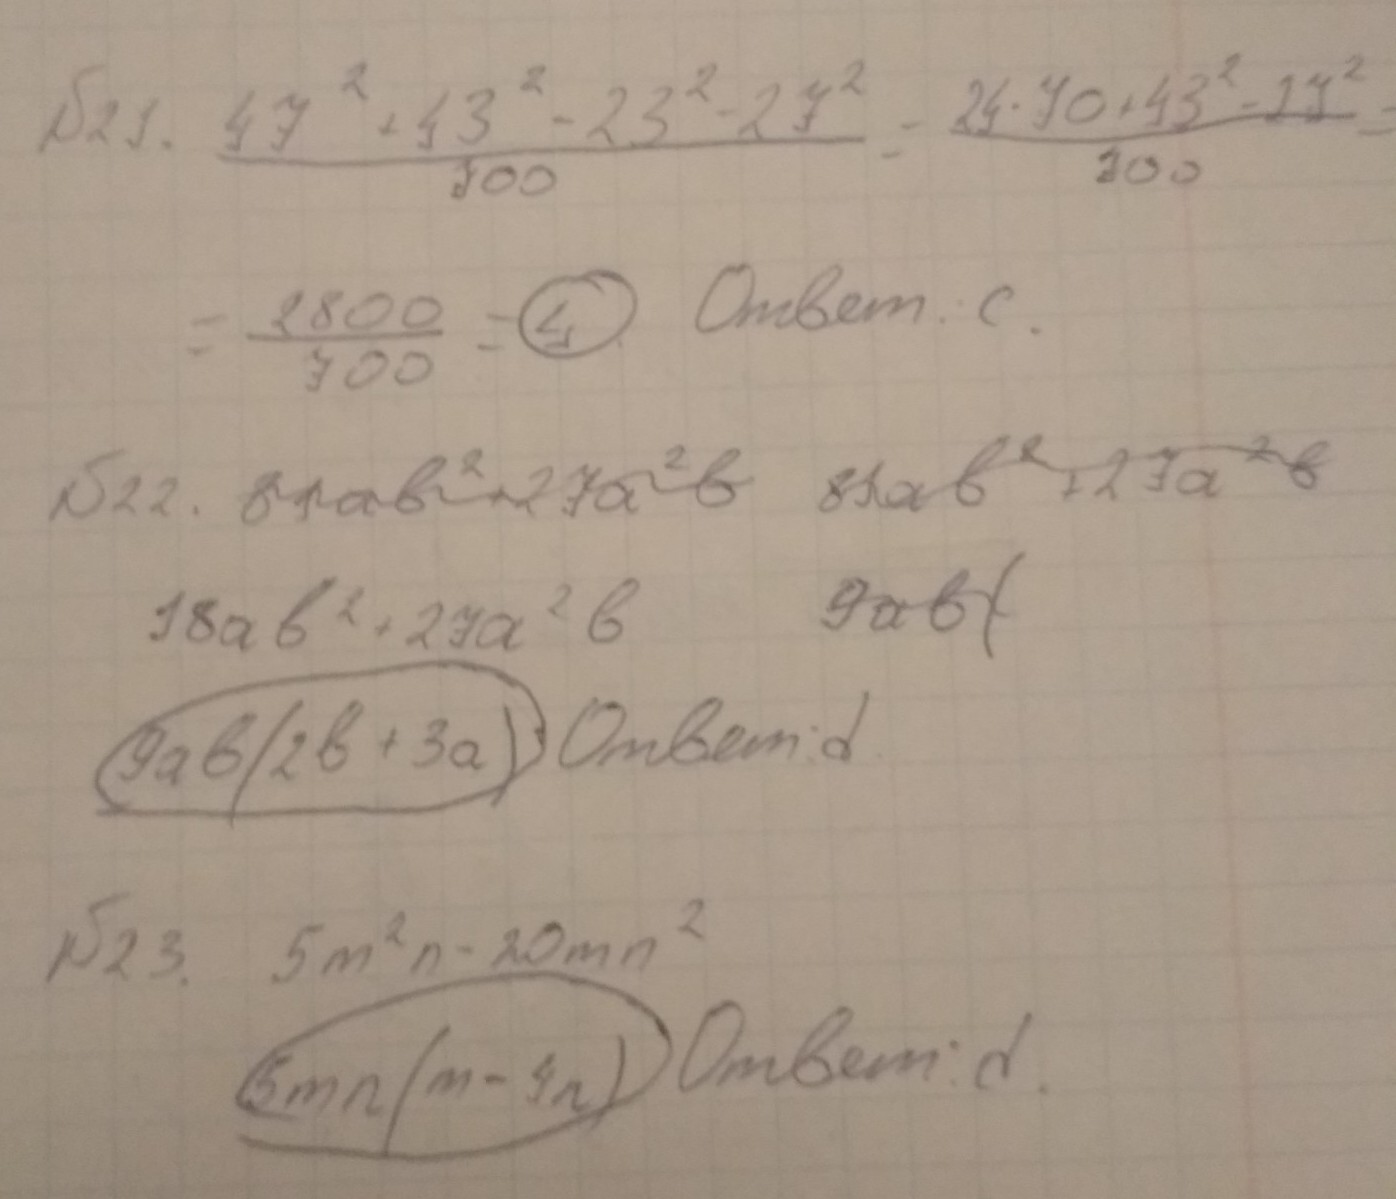 №21. 47² + 43² - 23² - 27² / 700 = 24·70 + 43² - 27² / 700 =
= 2800 / 700 = 4. Ответ: c.
№22. 81ab² + 27a²b 81ab² + 27a²b
18ab² + 27a²b 9ab(
9ab(2b + 3a) Ответ: d.
№23. 5m²n - 20mn²
5mn(m - 4n) Ответ: d.